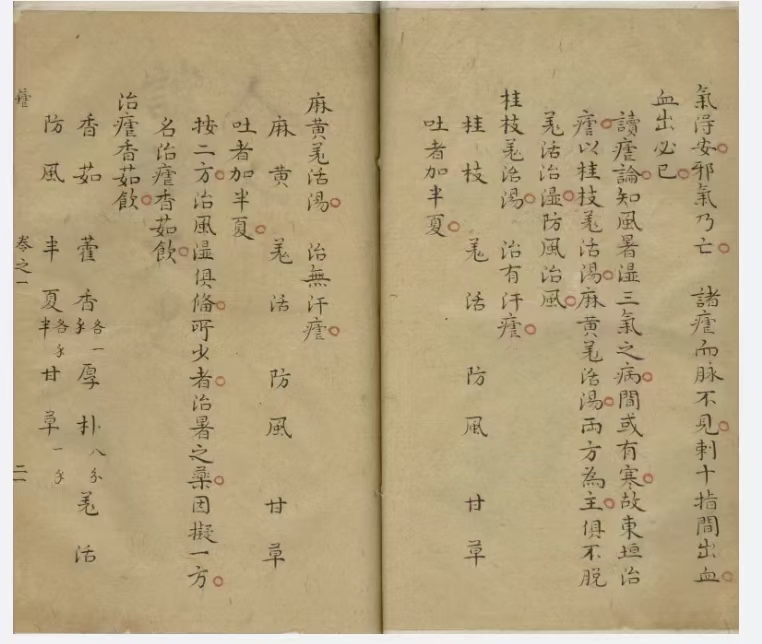 氣得安邪氣乃亡 諸瘧而脉不見刺十指間出血
血出必已
讀瘧論知風暑濕三氣之病間或有寒故東垣治
瘧以桂枝羗活湯麻黄羗活湯兩方為主俱不脫
羗活治濕防風治風
桂枝羗活湯 治有汗瘧
桂枝 羗活 防風 甘草
吐者加半夏
麻黄羗活湯 治無汗瘧
麻黄 羗活 防風 甘草
吐者加半夏
按二方治風濕俱備所少者治暑之藥因擬一方
名治瘧香茹飲
治瘧香茹飲
香茹 藿香各一錢 厚朴八分 羗活
防風 半夏各半錢 甘草一錢
瘧 卷之一 二